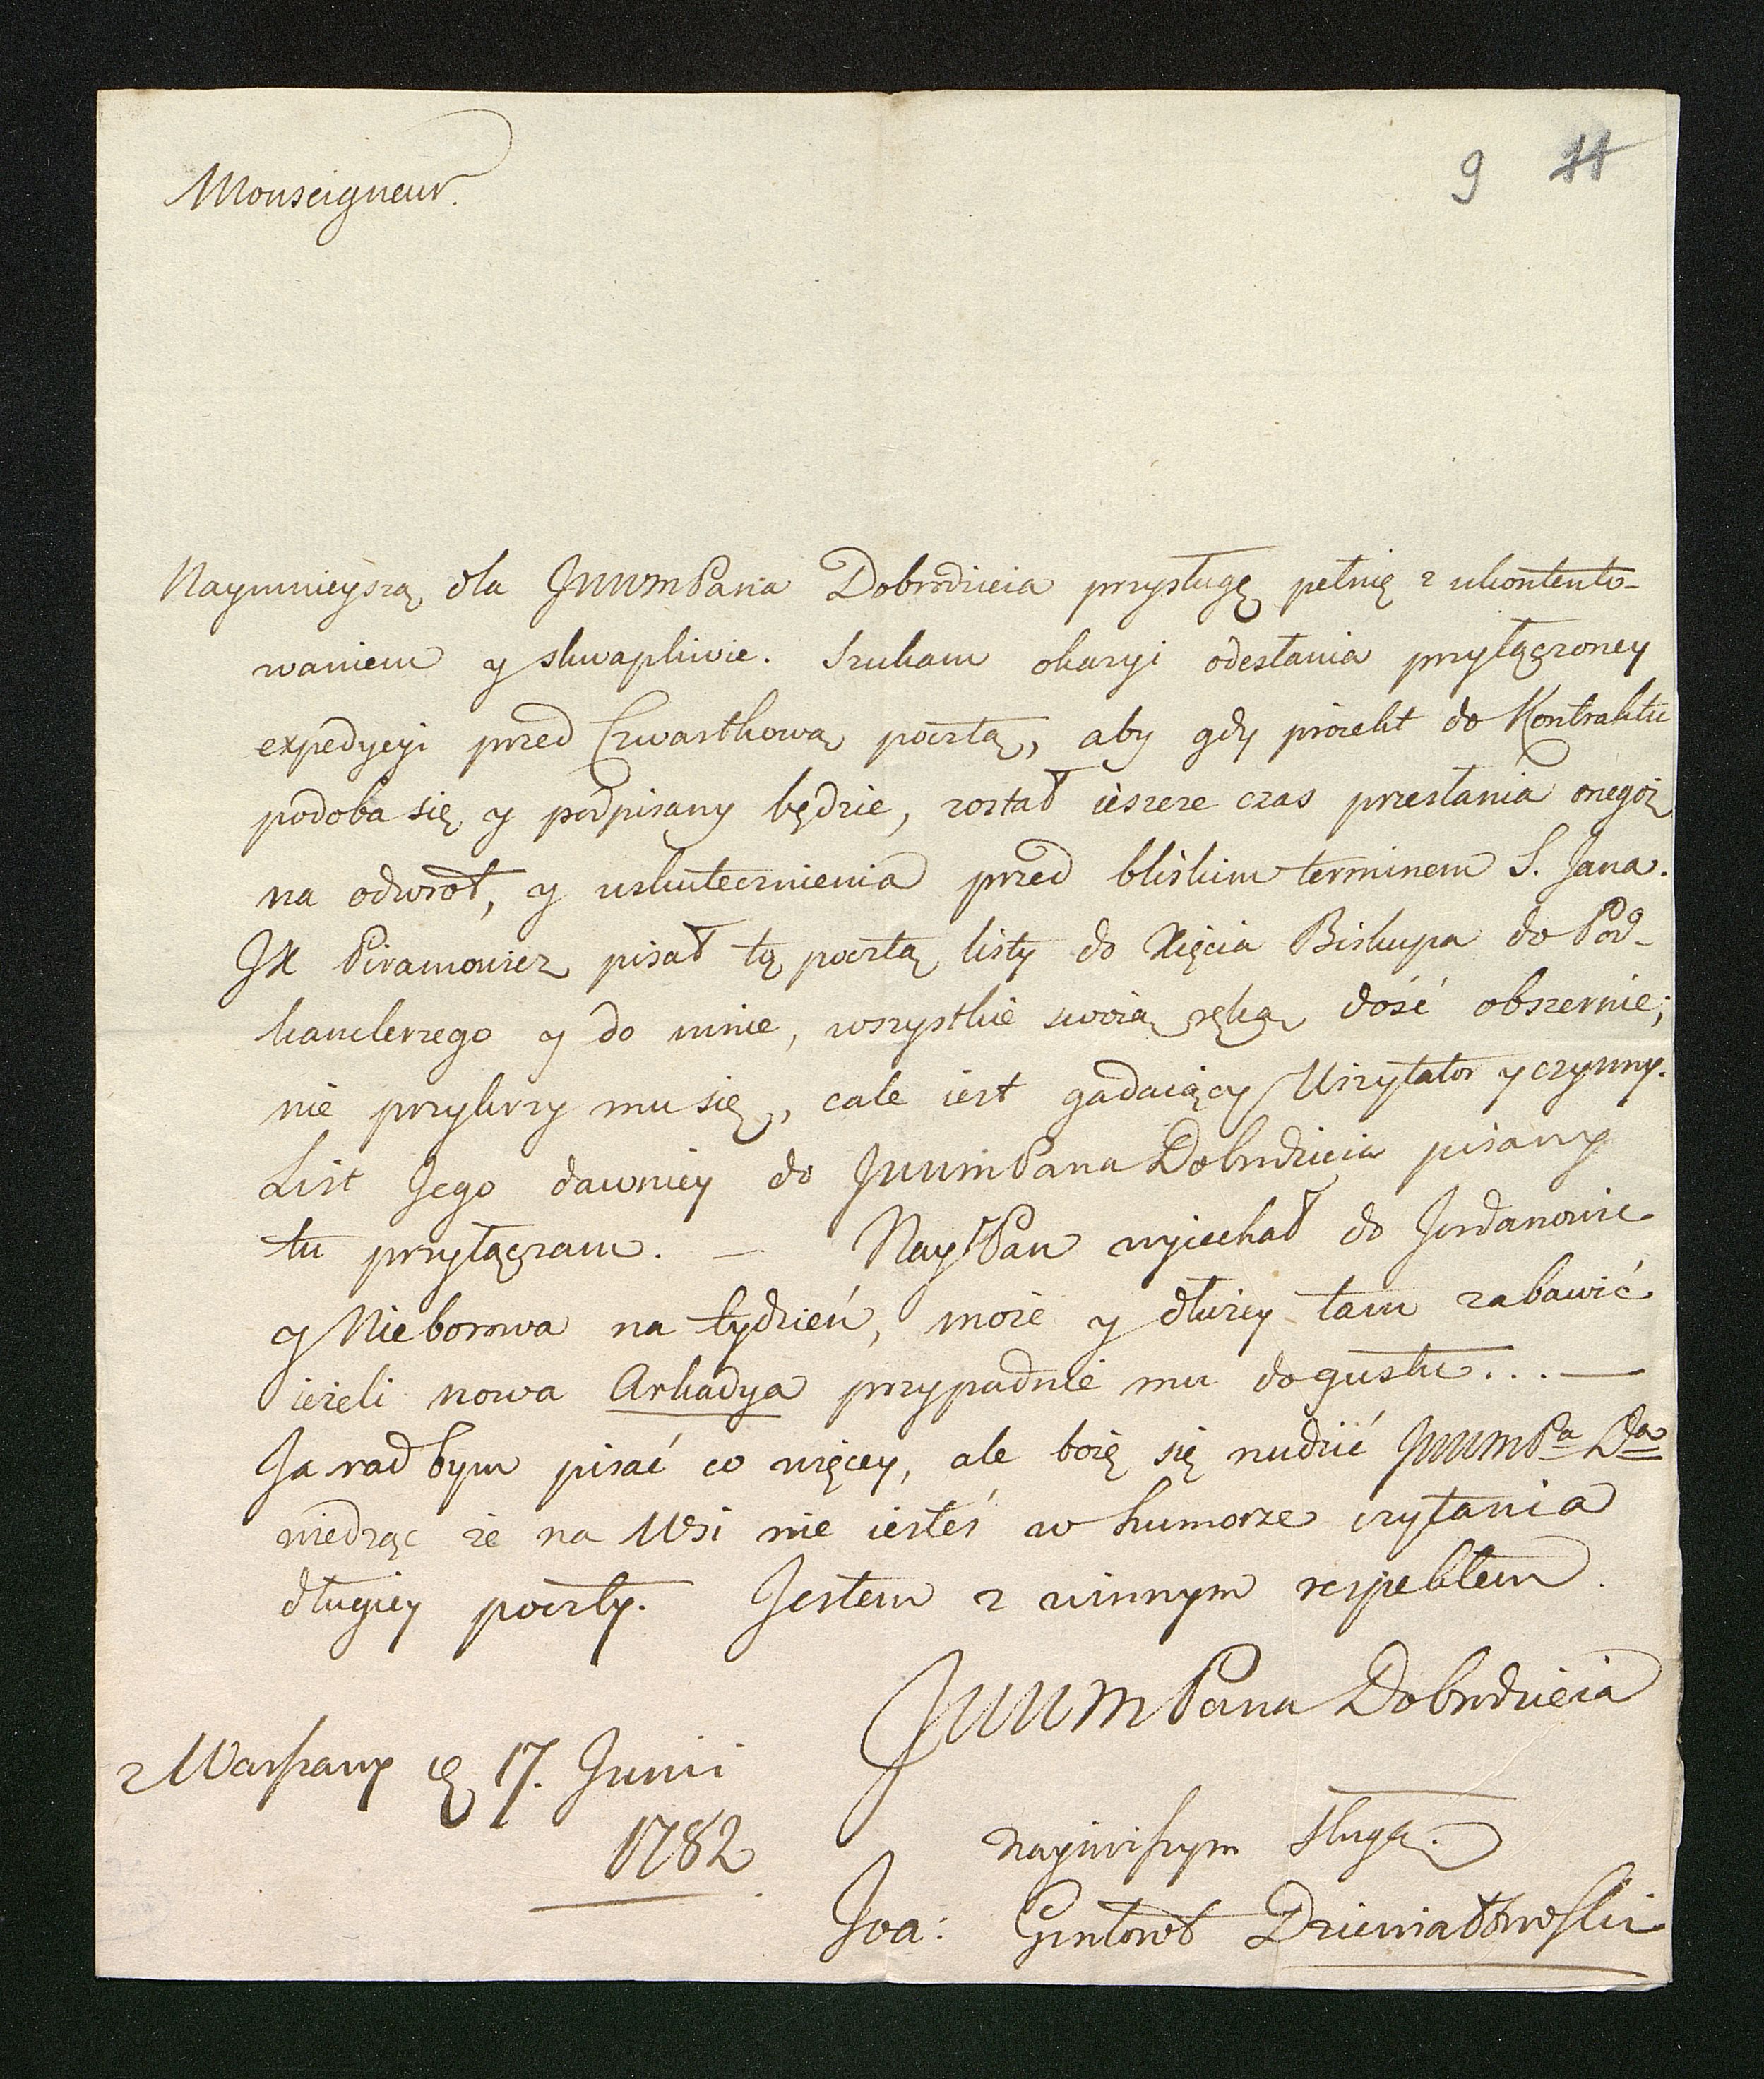 Monseigneur.
9 11
Naymnieyszą dla JWWmPana Dobrodzieia przysługę pełnię z ukontento-
waniem y skwapliwie. Szukam okazyi odesłania przyłączoney
expedycyi przed Czwartkową pocztą, aby gdy proiekt do Kontraktu
podoba się y podpisany będzie, został ieszcze czas przesłania onegoż
na odwrot, y uskutecznienia przed bliskim terminem S. Jana.
JX Piramowicz pisał tą pocztą listy do Xięcia Biskupa do Pod-
kanclerzego y do mnie, wszystkie swoią ręką dość obszernie;
nie przykrzy mu się, cale iest gadaiący Wizytator y czynny.
List Jego dawniey do JWWmPana Dobrodzieia pisany
tu przyłączam. — Nay Pan wyiechał do Jordanowic
y Nieborowa na tydzień, może y dłużey tam zabawić
ieżeli nowa Arkadya przypadnie mu do gustu... —
Ja rad bym pisać co więcey, ale boię się nudzić JWWmPa Da
wiedząc że na Wsi nie iesteś w humorze czytania
długiey poczty. Jestem z winnym respektem
JWWmPana Dobrodzieia
z Warszawy 17. Junii
1782
nayniższym sługą.
Joa: Gintowt Dziewiałtowski